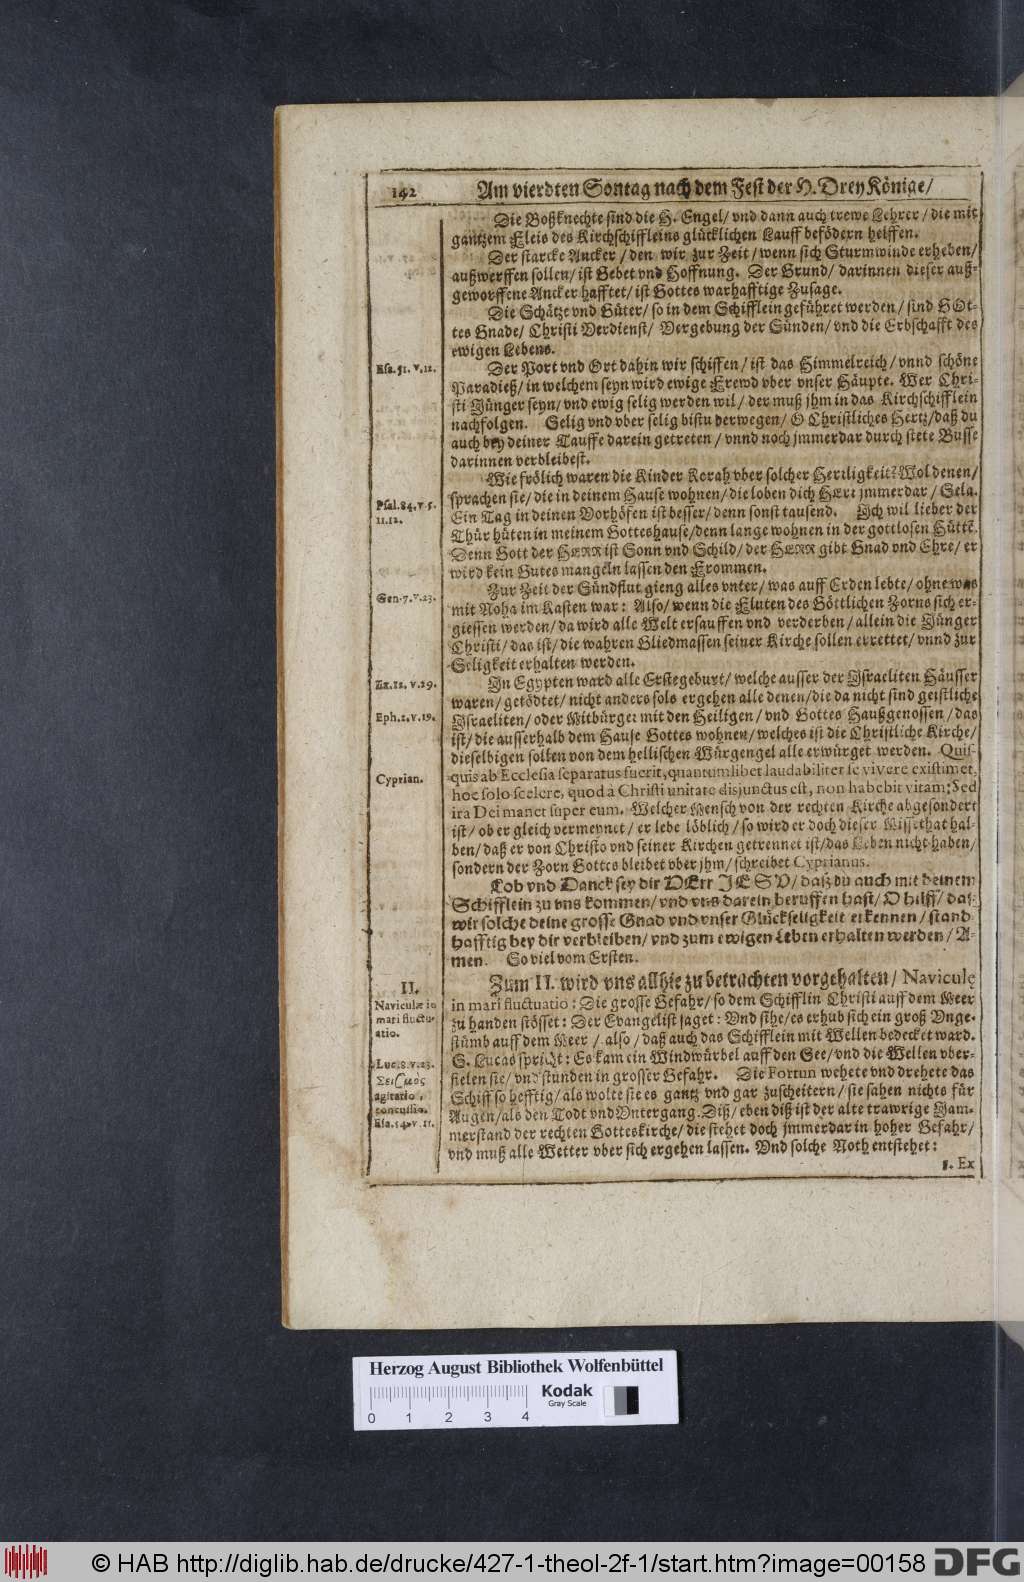 142 Am vierdten Sontag nach dem Fest der H. Drey Könige/
Die Boßknechte sind die H. Engel/ vnd dann auch trewe Lehrer/ die mit
gantzem Fleis des Kirchschiffleins glücklichen Lauff befödern helffen.
Der starcke Ancker/ den wir zur Zeit/ wenn sich Sturmwinde erheben/
außwerffen sollen/ ist Gebet vnd Hoffnung. Der Grund/ darinnen dieser auß-
geworffene Ancker hafftet/ ist Gottes warhafftige Zusage.
Die Schätze vnd Güter/ so in dem Schifflein geführet werden/ sind GOt-
tes Gnade/ Christi Verdienst/ Vergebung der Sünden/ vnd die Erbschafft des
ewigen Lebens.
Esa. 51. v. 12.
Der Port vnd Ort dahin wir schiffen/ ist das Himmelreich/ vnnd schöne
Paradieß/ in welchem seyn wird ewige Frewd vber vnser Häupte. Wer Chri-
sti Jünger seyn/ vnd ewig selig werden wil/ der muß jhm in das Kirchschifflein
nachfolgen. Selig vnd vber selig bistu derwegen/ O Christliches Hertz/ daß du
auch bey deiner Tauffe darein getreten/ vnnd noch jmmerdar durch stete Busse
darinnen verbleibest.
Wie frölich waren die Kinder Korah vber solcher Herrligkeit? Wol denen/
Psal. 84. v 5.
11.12.
sprachen sie/ die in deinem Hause wohnen/ die loben dich HErr jmmerdar/ Sela.
Ein Tag in deinen Vorhöfen ist besser/ denn sonst tausend. Ich wil lieber der
Thür hüten in meinem Gotteshause/ denn lange wohnen in der gottlosen Hüttē.
Denn Gott der HERR ist Sonn vnd Schild/ der HERR gibt Gnad vnd Ehre/ er
wird kein Gutes mangeln lassen den Frommen.
Zur Zeit der Sündflut gieng alles vnter/ was auff Erden lebte/ ohne was
Gen. 7. v. 23.
mit Noha im Kasten war: Also/ wenn die Fluten des Göttlichen Zorns sich er-
giessen werden/ da wird alle Welt ersauffen vnd verderben/ allein die Jünger
Christi/ das ist/ die wahren Gliedmassen seiner Kirche sollen errettet/ vnnd zur
Seligkeit erhalten werden.
Ex. 12. v. 29.
In Egypten ward alle Erstegeburt/ welche ausser der Israeliten Häusser
waren/ getödtet/ nicht anders sols ergehen alle denen/ die da nicht sind geistliche
Eph. 2. v. 19.
Israeliten/ oder Mitbürger mit den Heiligen/ vnd Gottes Haußgenossen/ das
ist/ die ausserhalb dem Hause Gottes wohnen/ welches ist die Christliche Kirche/
dieselbigen sollen von dem hellischen Würgengel alle erwürget werden. Quis-
Cyprian.
quis ab Ecclesia separatus fuerit, quantumlibet laudabiliter se vivere existimet,
hoc solo scelere, quod à Christi unitate disjunctus est, non habebit vitam; Sed
ira Dei manet super eum. Welcher Mensch von der rechten Kirche abgesondert
ist/ ob er gleich vermeynet/ er lebe löblich/ so wird er doch dieser Missethat hal-
ben/ daß er von Christo vnd seiner Kirchen getrennet ist/ das Leben nicht haben/
sondern der Zorn Gottes bleibet vber jhm/ schreibet Cyprianus.
Lob vnd Danck sey dir HErr JESU/ dasz du auch mit deinem
Schifflein zu vns kommen/ vnd vns darein beruffen hast/ O hilff/ daß
wir solche deine grosse Gnad vnd vnser Glückseligkeit erkennen/ stand
hafftig bey dir verbleiben/ vnd zum ewigen Leben erhalten werden/ A-
men. So viel vom Ersten.
II.
Zum II. wird vns allhie zu betrachten vorgehalten/ Naviculę
Naviculæ in
mari fluctu-
atio.
in mari fluctuatio: Die grosse Gefahr/ so dem Schifflin Christi auff dem Meer
zu handen stösset: Der Evangelist saget: Vnd sihe/ es erhub sich ein groß Vnge-
stümb auff dem Meer/ also/ daß auch das Schifflein mit Wellen bedecket ward.
Luc. 8. v. 23.
S. Lucas spricht: Es kam ein Windwürbel auff den See/ vnd die Wellen vber-
Σεισμὸς
agitatio,
concussio.
fielen sie/ vnd stunden in grosser Gefahr. Die Fortun wehete vnd drehete das
Schiff so hefftig/ als wolte sie es gantz vnd gar zuscheitern/ sie sahen nichts für
Augen/ als den Todt vnd Vntergang. Diß/ eben diß ist der alte trawrige Jam-
Esa. 54. v. 11.
merstand der rechten Gotteskirche/ die stehet doch jmmerdar in hoher Gefahr/
vnd muß alle Wetter vber sich ergehen lassen. Vnd solche Noth entstehet:
1. Ex
Herzog August Bibliothek Wolfenbüttel
0 1 2 3 4
Kodak
Gray Scale
© HAB http://diglib.hab.de/drucke/427-1-theol-2f-1/start.htm?image=00158
DFG